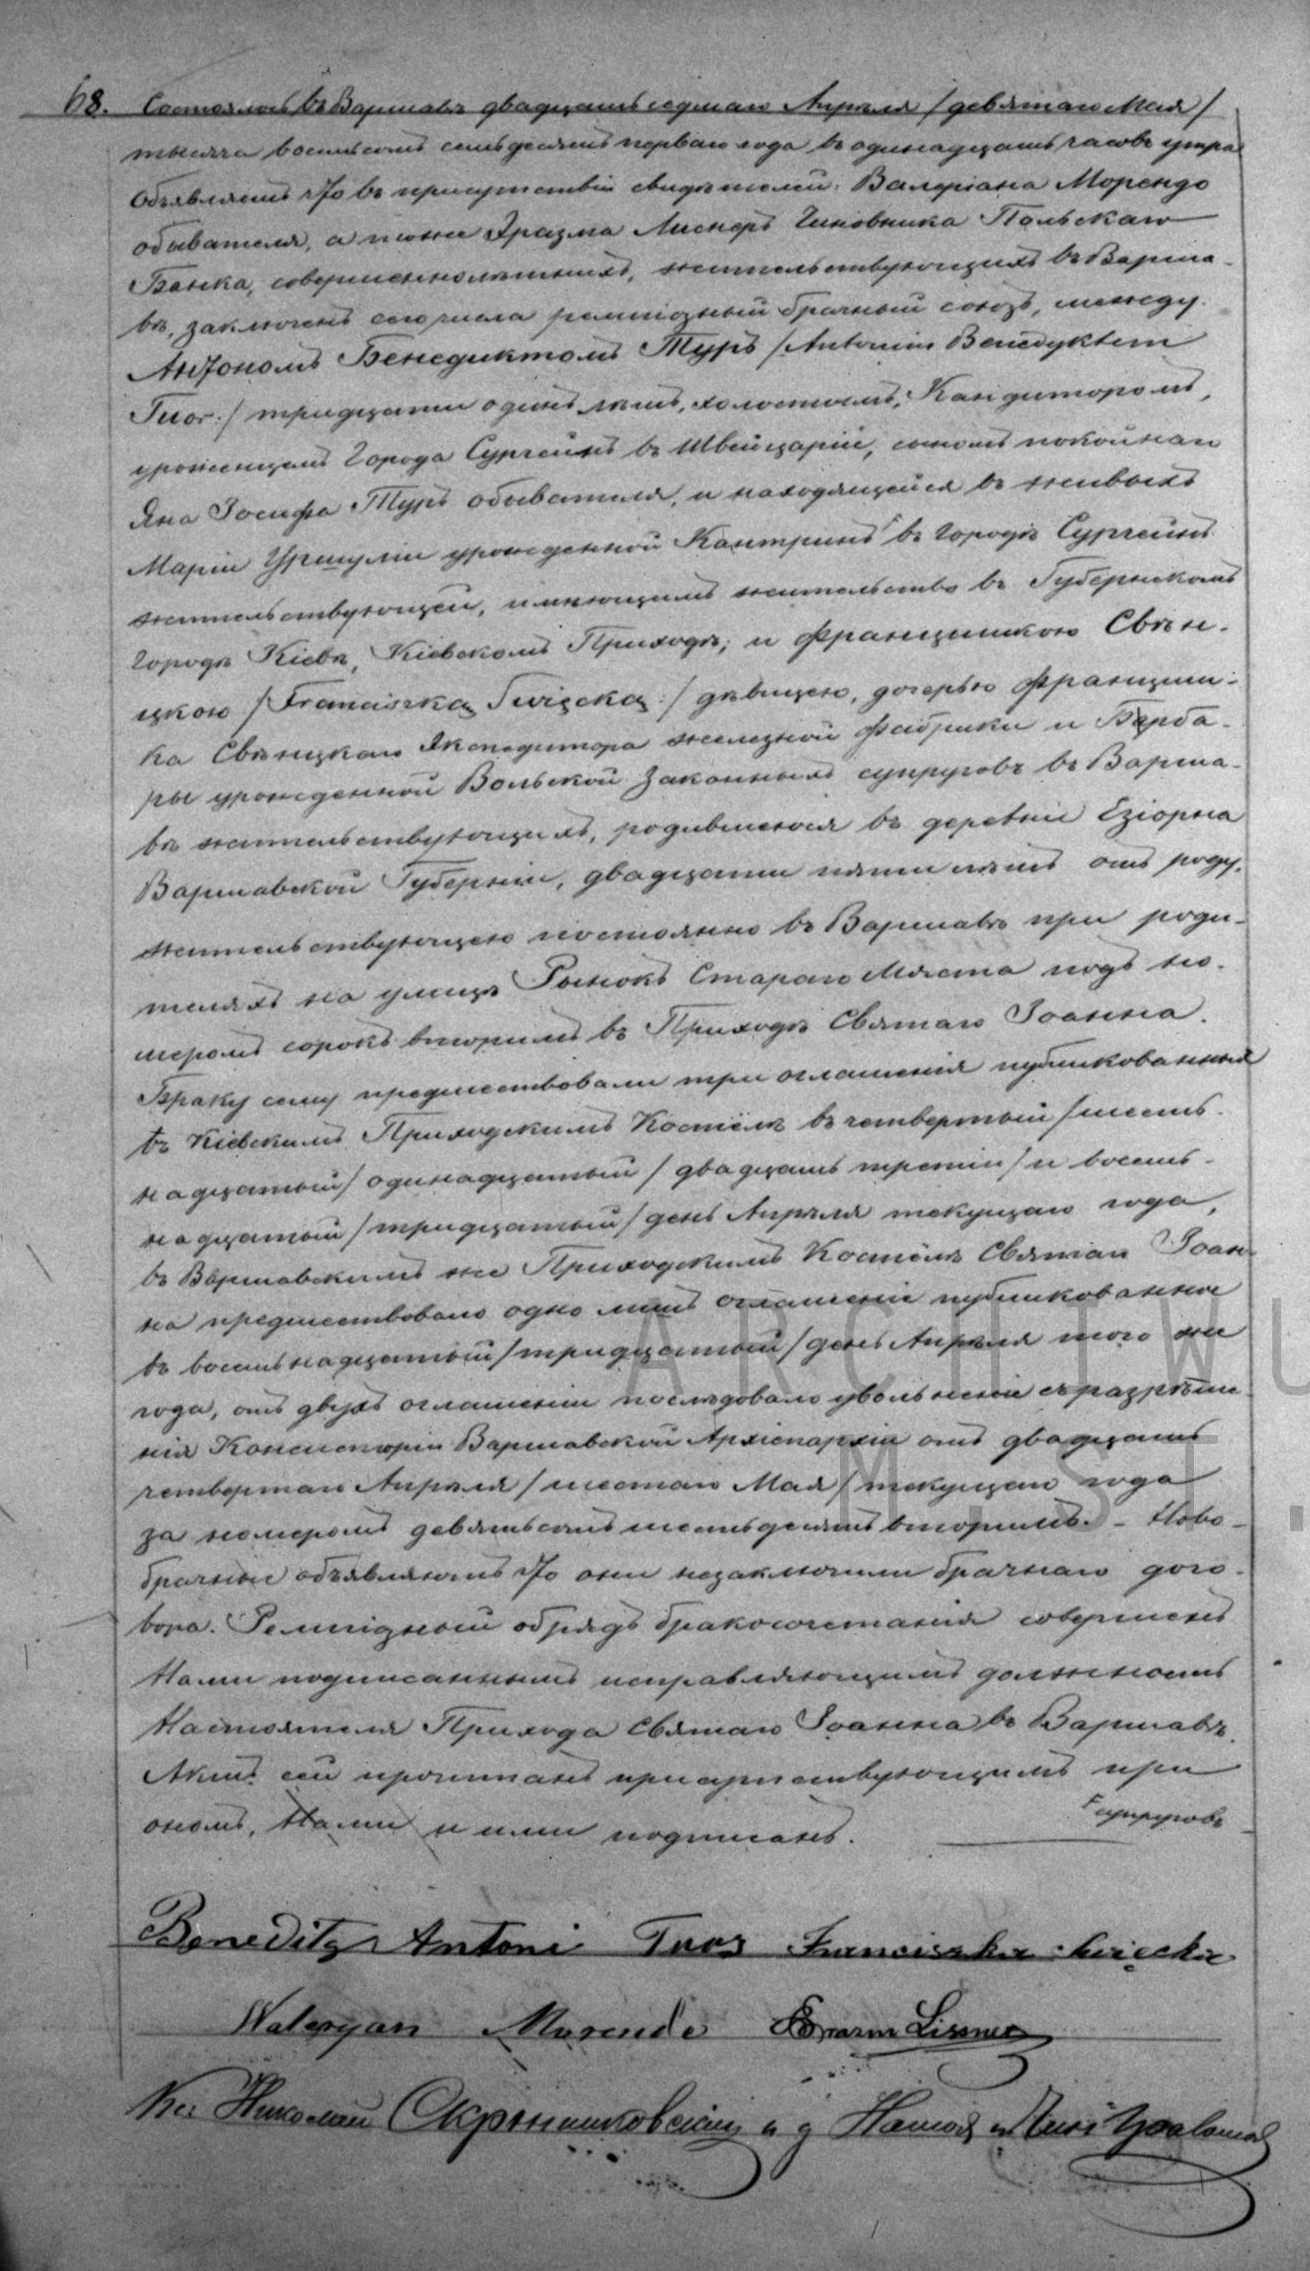 68. Состоялось въ Варшавѣ двадцать седьмаго Апрѣля /девятаго Мая/
тысяча восемьсотъ семьдесятъ перваго года въ одинадцать часовъ утра
Объявляемъ что въ присутствіи свидѣтелей: Валеріана Морендо
обывателя, а также Эразма Лиснеръ Чиновника Польскаго
Банка, совершеннолѣтнихъ, жительствующихъ въ Варша-
вѣ, заключенъ сего числа религіозный брачный союзъ, между
Антономъ Бенедиктомъ Туръ /Antonim Benedyktem
Tuor:/ тридцати одинъ лѣтъ, холостымъ, Кандиторомъ,
уроженцемъ Города Сургейнъ въ Швейцаріи, сыномъ покойнаго
Яна Іосифа Туръ обывателя, и находящейся въ живыхъ
Маріи Уршули урожденной Кантринъ въ городѣ Сургейнъ
жительствующей, имѣющимъ жительство въ Губернскомъ
городѣ Кіевѣ, Кіевскомъ Приходѣ; и Францишкою Свѣн-
цкою /Franciszką Święcką:/ дѣвицею, дочерью Францишк-
ка Свѣнцкаго Экспедитора железной фабрики и Барба-
ры урожденной Вольской законныхъ супруговъ въ Варша-
вѣ жительствующихъ, родившеюся въ деревни Езіорна
Варшавской Губерніи, двадцати пяти лѣтъ отъ роду,
жительствующею постоянно въ Варшавѣ при роди-
теляхъ на улицѣ Рынокъ Стараго Мяста подъ но-
меромъ сорокъ вторымъ въ Приходѣ Святаго Іоанна.
Браку сему предшествовали три оглашенія публикованныя
въ Кіевскимъ Приходскимъ Костёлѣ въ четвертый /шест-
надцатый/ одинадцатый /двадцать третій/ и восемь-
надцатый /тридцатый/ день Апрѣля текущаго года,
въ Варшавскимъ же Приходскимъ Костёлѣ Святаго Іоан-
на предшествовало одно лишь оглашеніе публикованное
въ восемьнадцатый /тридцатый/ день Апрѣля того же
года, отъ двухъ оглашеніи послѣдовало увольненіе съ разрѣше-
нія Консисторіи Варшавской Архіепархіи отъ двадцать
четвертаго Апрѣля /шестаго Мая/ текущаго года
за номеромъ девятьсотъ шестьдесятъ вторымъ. - Ново-
брачные объявляютъ что они незаключили брачнаго дого-
вора. Религіозный обрядъ бракосочетанія совершенъ
Нами подписаннымъ исправляющимъ должность
Настоятеля Прихода Святаго Іоанна въ Варшавѣ.
Актъ сей прочитанъ присутствующимъ при
ономъ, Нами и ими подписанъ.
супруговъ
Benedikt Antoni Tuor Franciszka Święcka
Waleryan Morendo Erazm Lissner
Кс: Николай Скрынниковскій и д Настоя
ARCHIWU
M. ST.